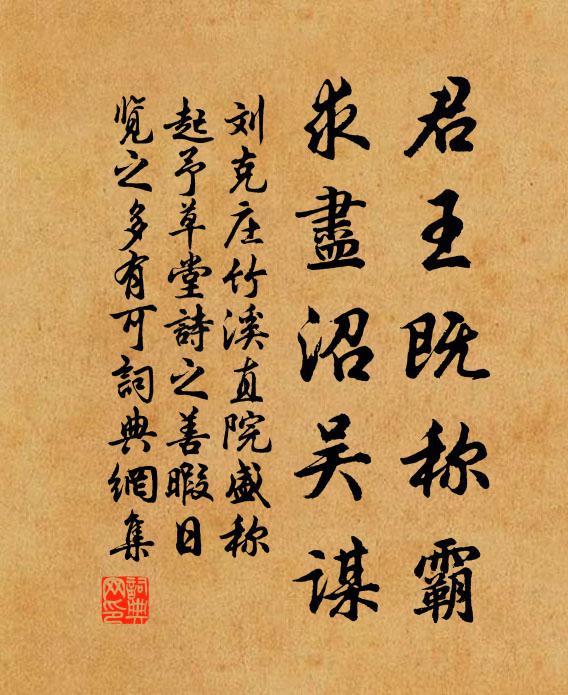 君王既称霸
求盡沼吴謀
刘克庄竹溪直院盛称
起予草堂詩之善暇日
览之多有可詞典網集
詞典网印